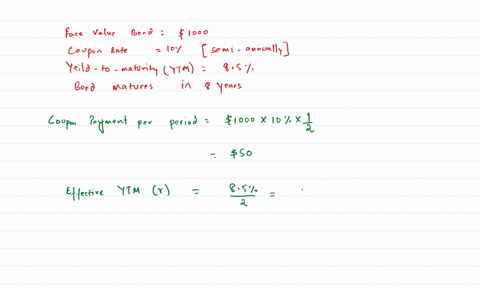 Face Value Bond = $1000
Coupon Rate = 10% [semi-annually]
Yeild-to-maturity (YTM) = 8.5%
Bond matures in 8 years
Coupon Payment per period = $1000 × 10% × 1/2
= $50
Effective YTM (r) = 8.5%/2 =